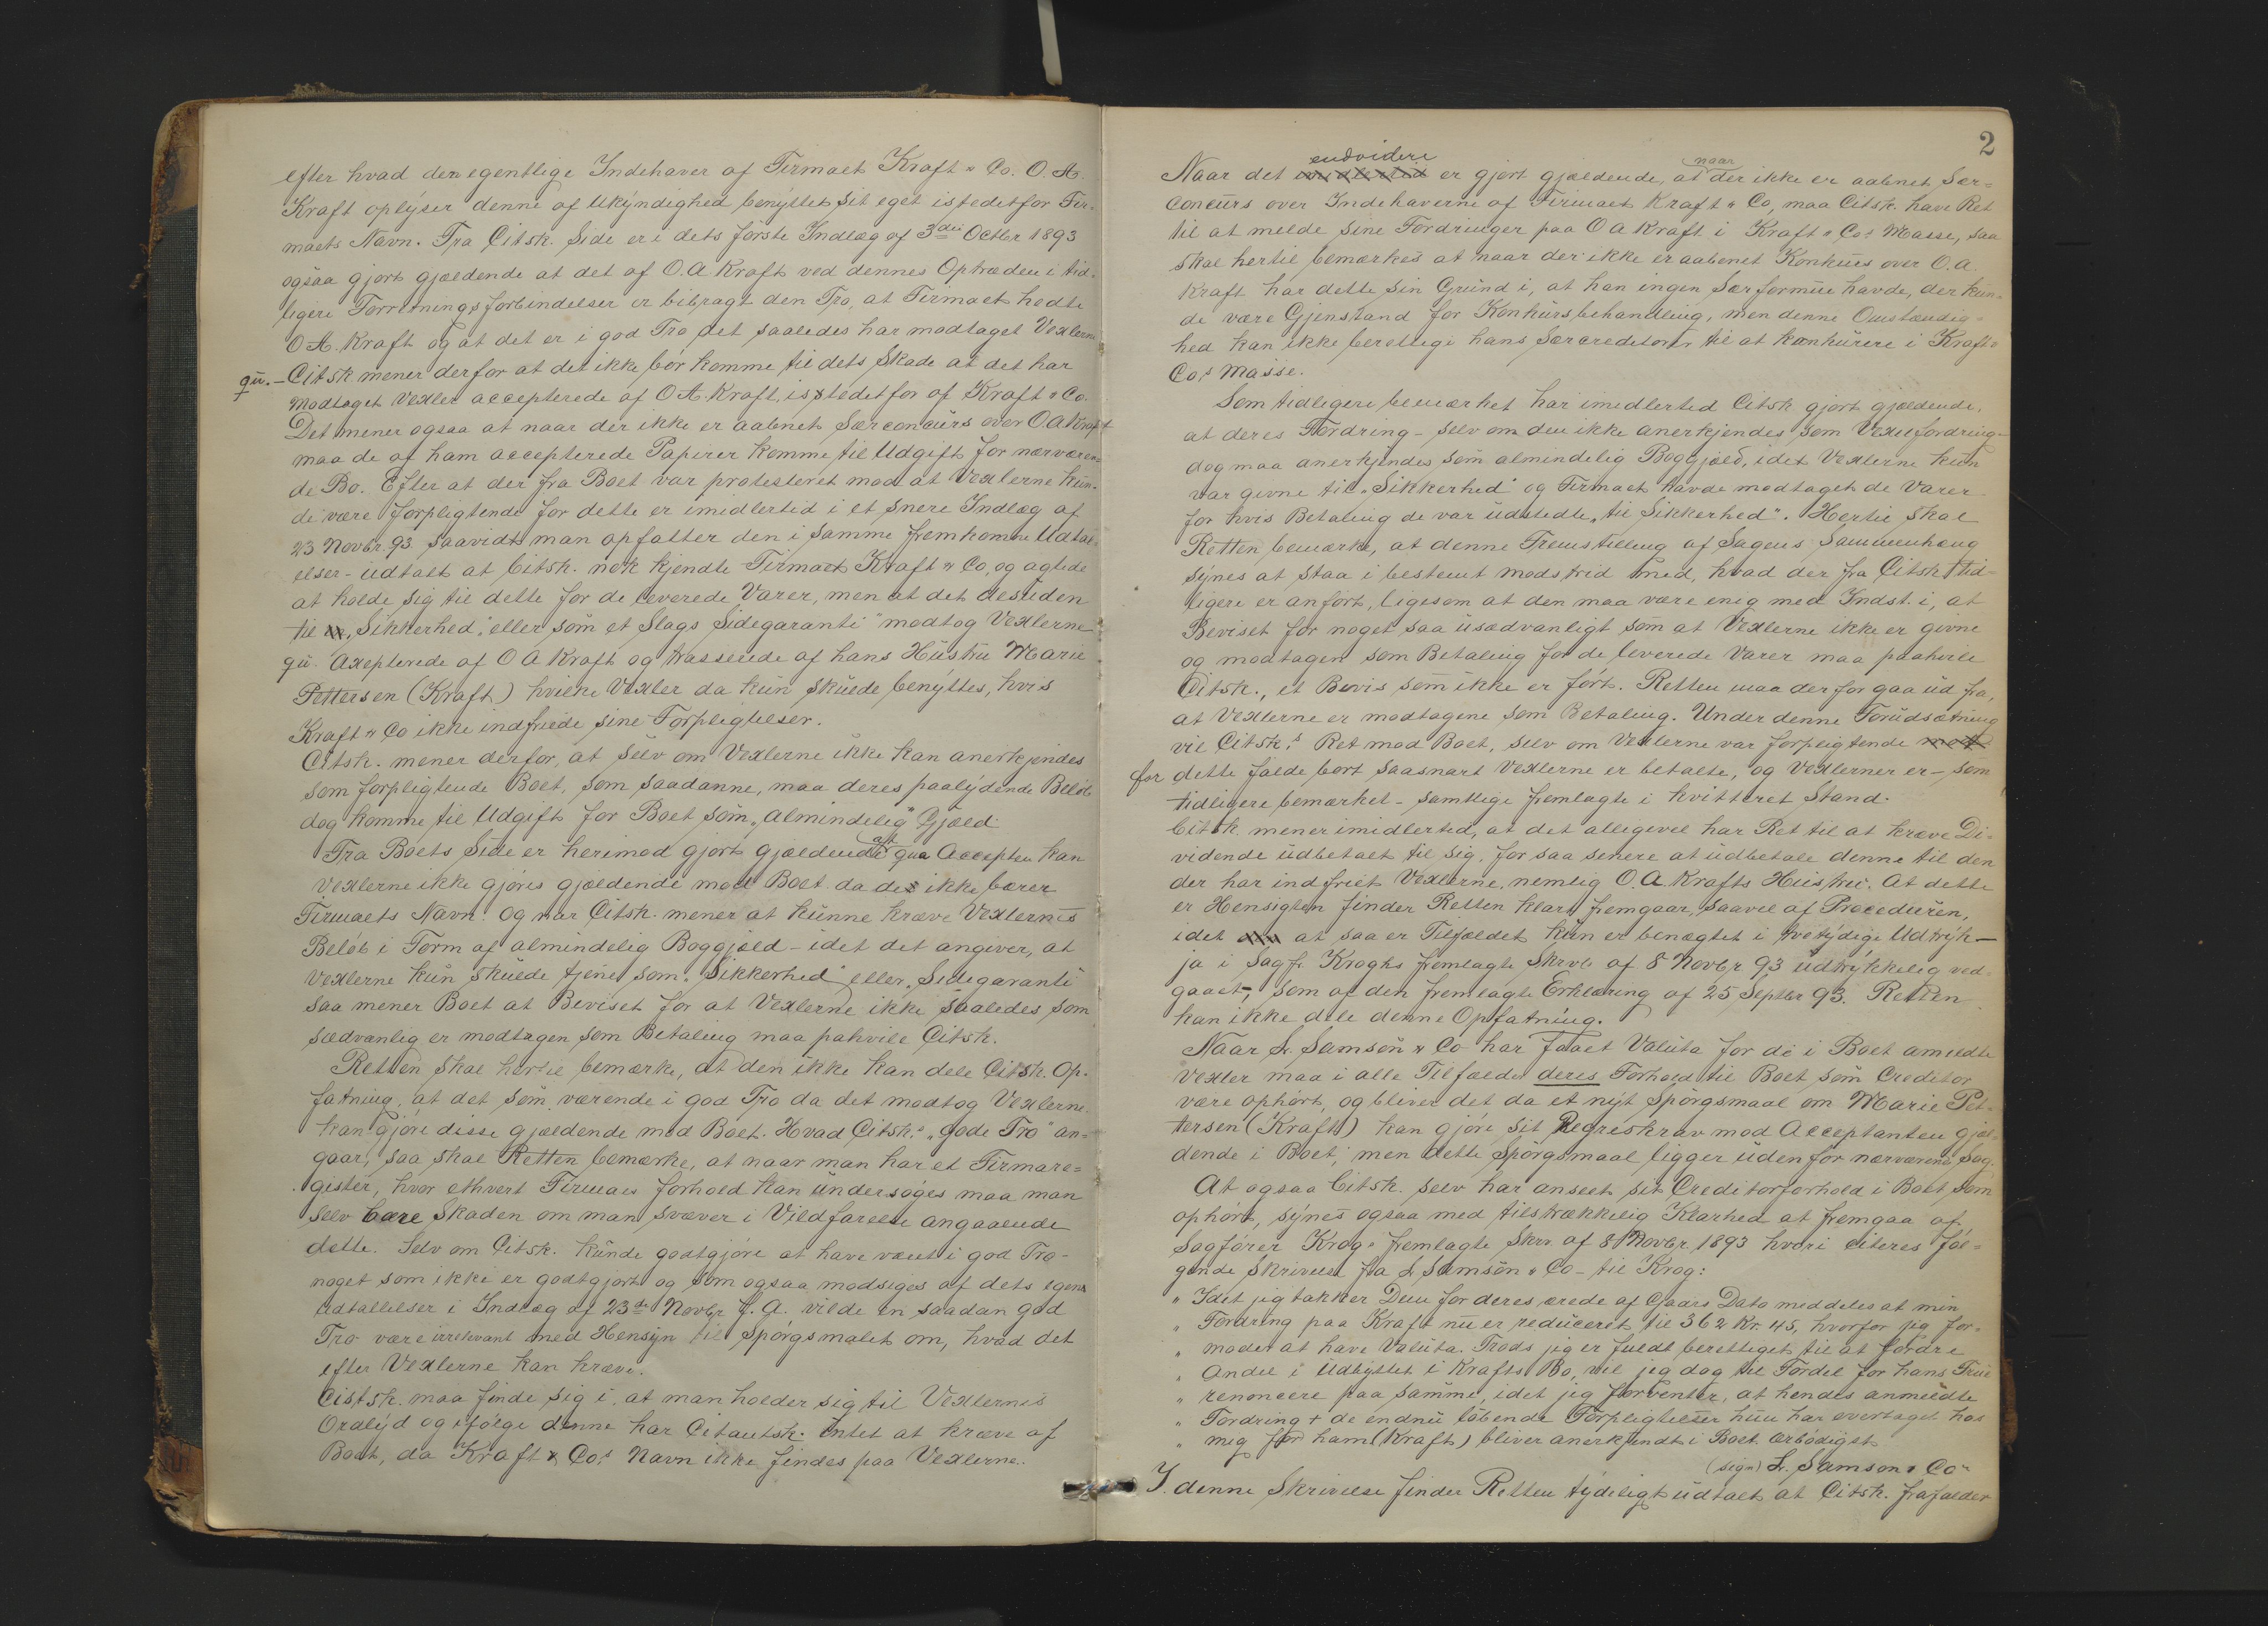 efter hvad den egentlige Indehaver af Firmaet Kraft & Co. O. A.
Kraft oplyser denne af Ukyndighed benyttet sit eget istedetfor Fir-
maets Navn. Fra Citsk. Side er i dets første Indlæg af 3die Octbr 1893
ogsaa gjort gjældende at det af O. A Kraft ved dennes Optræden i tid-
ligere Forretningsforbindelser er bibragt den Tro, at Firmaet hedte
O A. Kraft og at det er i god Tro det saaledes har modtaget Vexlerne
qu. - Citsk mener derfor at det ikke bør komme til dets Skade at det har
modtaget Vexler accepterede af O A. Kraft, istedetfor af Kraft & Co.
Det mener ogsaa at naar der ikke er aabnet Særconcurs over O A Kraft
maa de af ham accepterede Papirer komme til Udgift for nærværen-
de Bo. Efter at der fra Boet var protesteret mod at Vexlerne kun-
de være forpligtende for dette er imidlertid i et snere Indlæg af
23 Novbr. 93 saavidt man opfatter den i samme fremkomne Udtal-
elser - udtalt at Citsk. nok kjendte Firmaet Kraft & Co, og agtede
at holde sig til dette for de leverede Varer, men at det desuden
til „Sikkerhed," eller som et Slags Sidegaranti" modtog Vexlerne
qu. Axepterede af O A Kraft og trasserede af hans Hustru Marie
Pettersen (Kraft) hvilke Vexler da kun skulde benyttes, hvis
Kraft & Co ikke indfriede sine Forpligtelser.
Citsk. mener derfor, at selv om Vexlerne ikke kan anerkjendes
som forpligtende Boet, som saadanne, maa deres paalydende Beløb
dog komme til Udgift for Boet som „Almindelig" Gjæld.
Fra Boets Side er herimod gjort gjældende att qua Accepten kan
Vexlerne ikke gjøres gjældende mod Boet da de ikke bærer
Firmaets Navn. Og nar Citsk. mener at kunne kræve Vexlernes
Beløb i Form af almindelig Boggjæld - idet det angiver, at
Vexlerne kun skulde tjene som „Sikkerhed" eller „Sidegaranti
saa mener Boet at Beviset for at Vexlerne ikke saaledes som
sædvanlig er modtagen som Betaling maa pahvile Citsk.
Retten skal hertil bemærke, at den ikke kan dele Citsk. Op-
fatning, at det som værende i god Tro da det modtog Vexlerne
kan gjøre disse gjældende mod Boet. Hvad Citsk.s „gode Tro" an-
gaar, saa skal Retten bemærke, at naar man har et Firmare-
gister, hvor ethvert Firmas forhold kan undersøges maa man
selv bære Skaden om man svæver i Vildfarelse angaaende
dette. Selv om Citsk. kunde godtgjøre at have været i god Tro -
noget som ikke er godtgjort og som ogsaa modsiges af dets egen
Udtallelser i Indlæg af 23de Novbr f. A. vilde en saadan god
Tro være irrelevant med Hensyn til Spørgsmalet om, hvad det
efter Vexlerne kan kræve.
Citstk. maa finde sig i, at man holder sig til Vexlernes
Ordlyd og ifølge denne har Citantsk. intet at kræve af
Boet, da Kraft & Cos Navn ikke findes paa Vexlerne.
2
endvidere naar
Naar det imidlertid er gjort gjældende, at der ikke er aabnet Sær-
concurs over Indehaverne af Firmaet Kraft & Co, maa Citsk. have Ret
til at melde sine Fordringer paa O A Kraft i Kraft & Cos Masse, saa
skal hertil bemærkes at naar der ikke er aabenet Konkurs over O. A.
Kraft har dette sin Grund i, at han ingen Særformue havde, der kun-
de være Gjenstand for Konkursbehandling, men denne Omstændig-
hed kan ikke berettige hans Særcreditorer til at konkurere i Kraft &
Cos Masse.
Som tidligere bemærket har imidlertid Citsk. gjort gjældende,
at deres Fordring - selv om den ikke anerkjendes som Vexelfordring -
dog maa anerkjendes som almindelig Boggjæld, idet Vexlerne kun
var givne til „Sikkerhed" og Firmaet havde modtaget de Varer
for hvis Betaling de var udstedte „til Sikkerhed". Hertil skal
Retten bemærke, at denne Fremstilling af Sagens Sammenhæng
synes at staa i bestemt modstrid med, hvad der fra Citsk tid-
ligere er anført, ligesom at den maa være enig med Indst. i, at
Beviset for noget saa usædvanligt som at Vexlerne ikke er givne
og modtagen som Betaling for de leverede Varer maa paahvile
Citsk., et Bevis som ikke er ført. Retten maa derfor gaa ud fra,
at Vexlerne er modtagene som Betaling. Under denne Forudsætning
vil Citsk.s Ret mod Boet, selv om Vexlerne var forpligtende mod
for dette falde bort saasnart Vexlerne er betalte, og Vexlerner er - som
tidligere bemærket - samtlige fremlagte i kvitteret Stand.
Citsk mener imidlertid, at det alligevel har Ret til at kræve Di-
vidende udbetalt til sig, for saa senere at udbetale denne til den
der har indfriet Vexlerne, nemlig O. A. Krafts Hustru. At dette
er Hensigten finder Retten klart fremgaar, saavel af Proceduren,
idet at saa er Tilfældet kun er benægtet i tvetydige Udtryk -
ja i Sagfr. Kroghs fremlagte Skrvb af 8 Novbr 93 udtrykkelig ved-
gaaet -, som af den fremlagte Erklæring af 25 Septbr 93. Retten
kan ikke dele denne Opfatning.
Naar L. Samson & Co har faaet Valuta for de i Boet anmeldte
Vexler maa i alle Tilfælde deres Forhold til Boet som Creditor
være ophørt, og bliver det da et nyt Spørgsmaal om Marie Pet-
tersen (Kraft) kan gjøre sit Regreskrav mod Acceptanten gjæl-
dende i Boet, men dette Spørgsmaal ligger udenfor nærværende Sag.
At ogsaa Citsk. selv har anseet sit Creditorforhold i Boet som
ophørt, synes ogsaa med tilstrækkelig Klarhed at fremgaa af
Sagfører Krogs fremlagte Skrv. af 8 Novbr. 1893 hvori citeres føl-
gende Skrivelse fra L Samson & Co - til Krog:
„ Idet jeg takker Dem for deres ærede af Gaars Dato meddeles at min
„ Fordring paa Kraft nu er reduceret til 362 Kr. 45, hvorfor jeg for-
„ moder at have Valuta. Trods jeg er fuldt berettiget til at fordre
„ Andel i Udbyttet i Krafts Bo, vil jeg dog til Fordel for hans Frue
„ renoncere paa samme, idet jeg forventer, at hendes anmeldte
„ Fordring + de endnu løbende Forpligtelser hun har overtaget hos
„ meg for ham (Kraft) bliver anerkjendt i Boet. ærbødigst
(sign) L. Samson & Co"
I denne Skrivelse finder Retten tydeligt udtalt at Citsk. frafalder